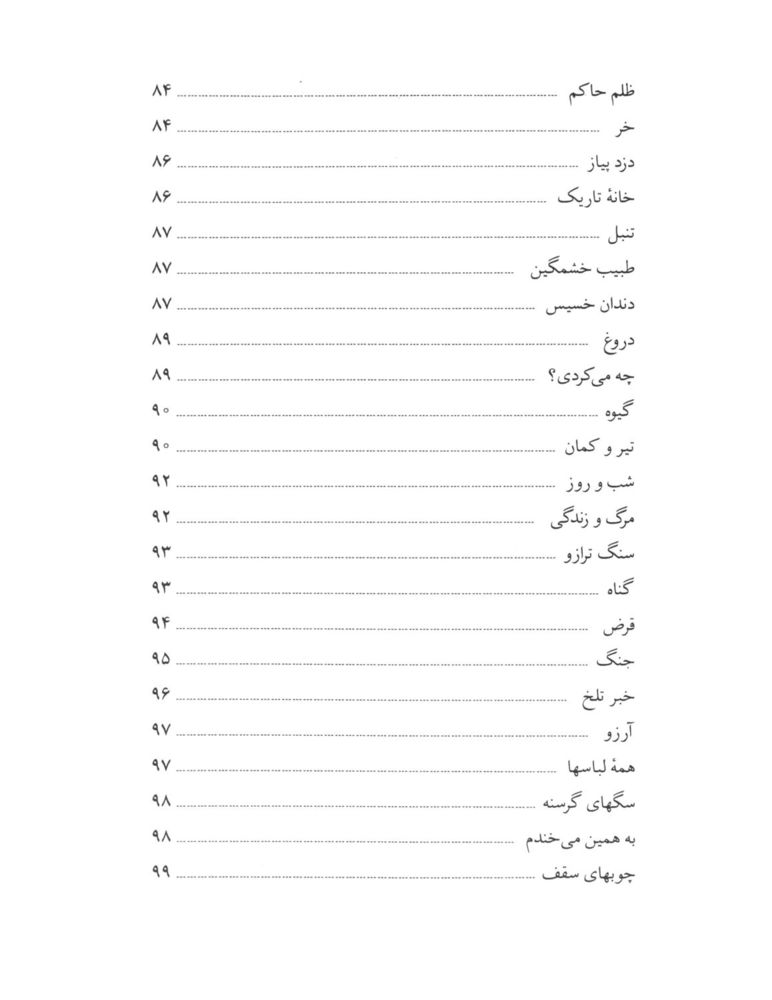 ظلم حاکم ........ ۸۴
خر ........ ۸۴
دزد پیاز ........ ۸۶
خانهٔ تاریک ........ ۸۶
تنبل ........ ۸۷
طبیب خشمگین ........ ۸۷
دندان خسیس ........ ۸۷
دروغ ........ ۸۹
چه می‌کردی؟ ........ ۸۹
گیوه ........ ۹۰
تیر و کمان ........ ۹۰
شب و روز ........ ۹۲
مرگ و زندگی ........ ۹۲
سنگ ترازو ........ ۹۳
گناه ........ ۹۳
قرض ........ ۹۴
جنگ ........ ۹۵
خبر تلخ ........ ۹۶
آرزو ........ ۹۷
همهٔ لباسها ........ ۹۷
سگهای گرسنه ........ ۹۸
به همین می‌خندم ........ ۹۸
چوبهای سقف ........ ۹۹